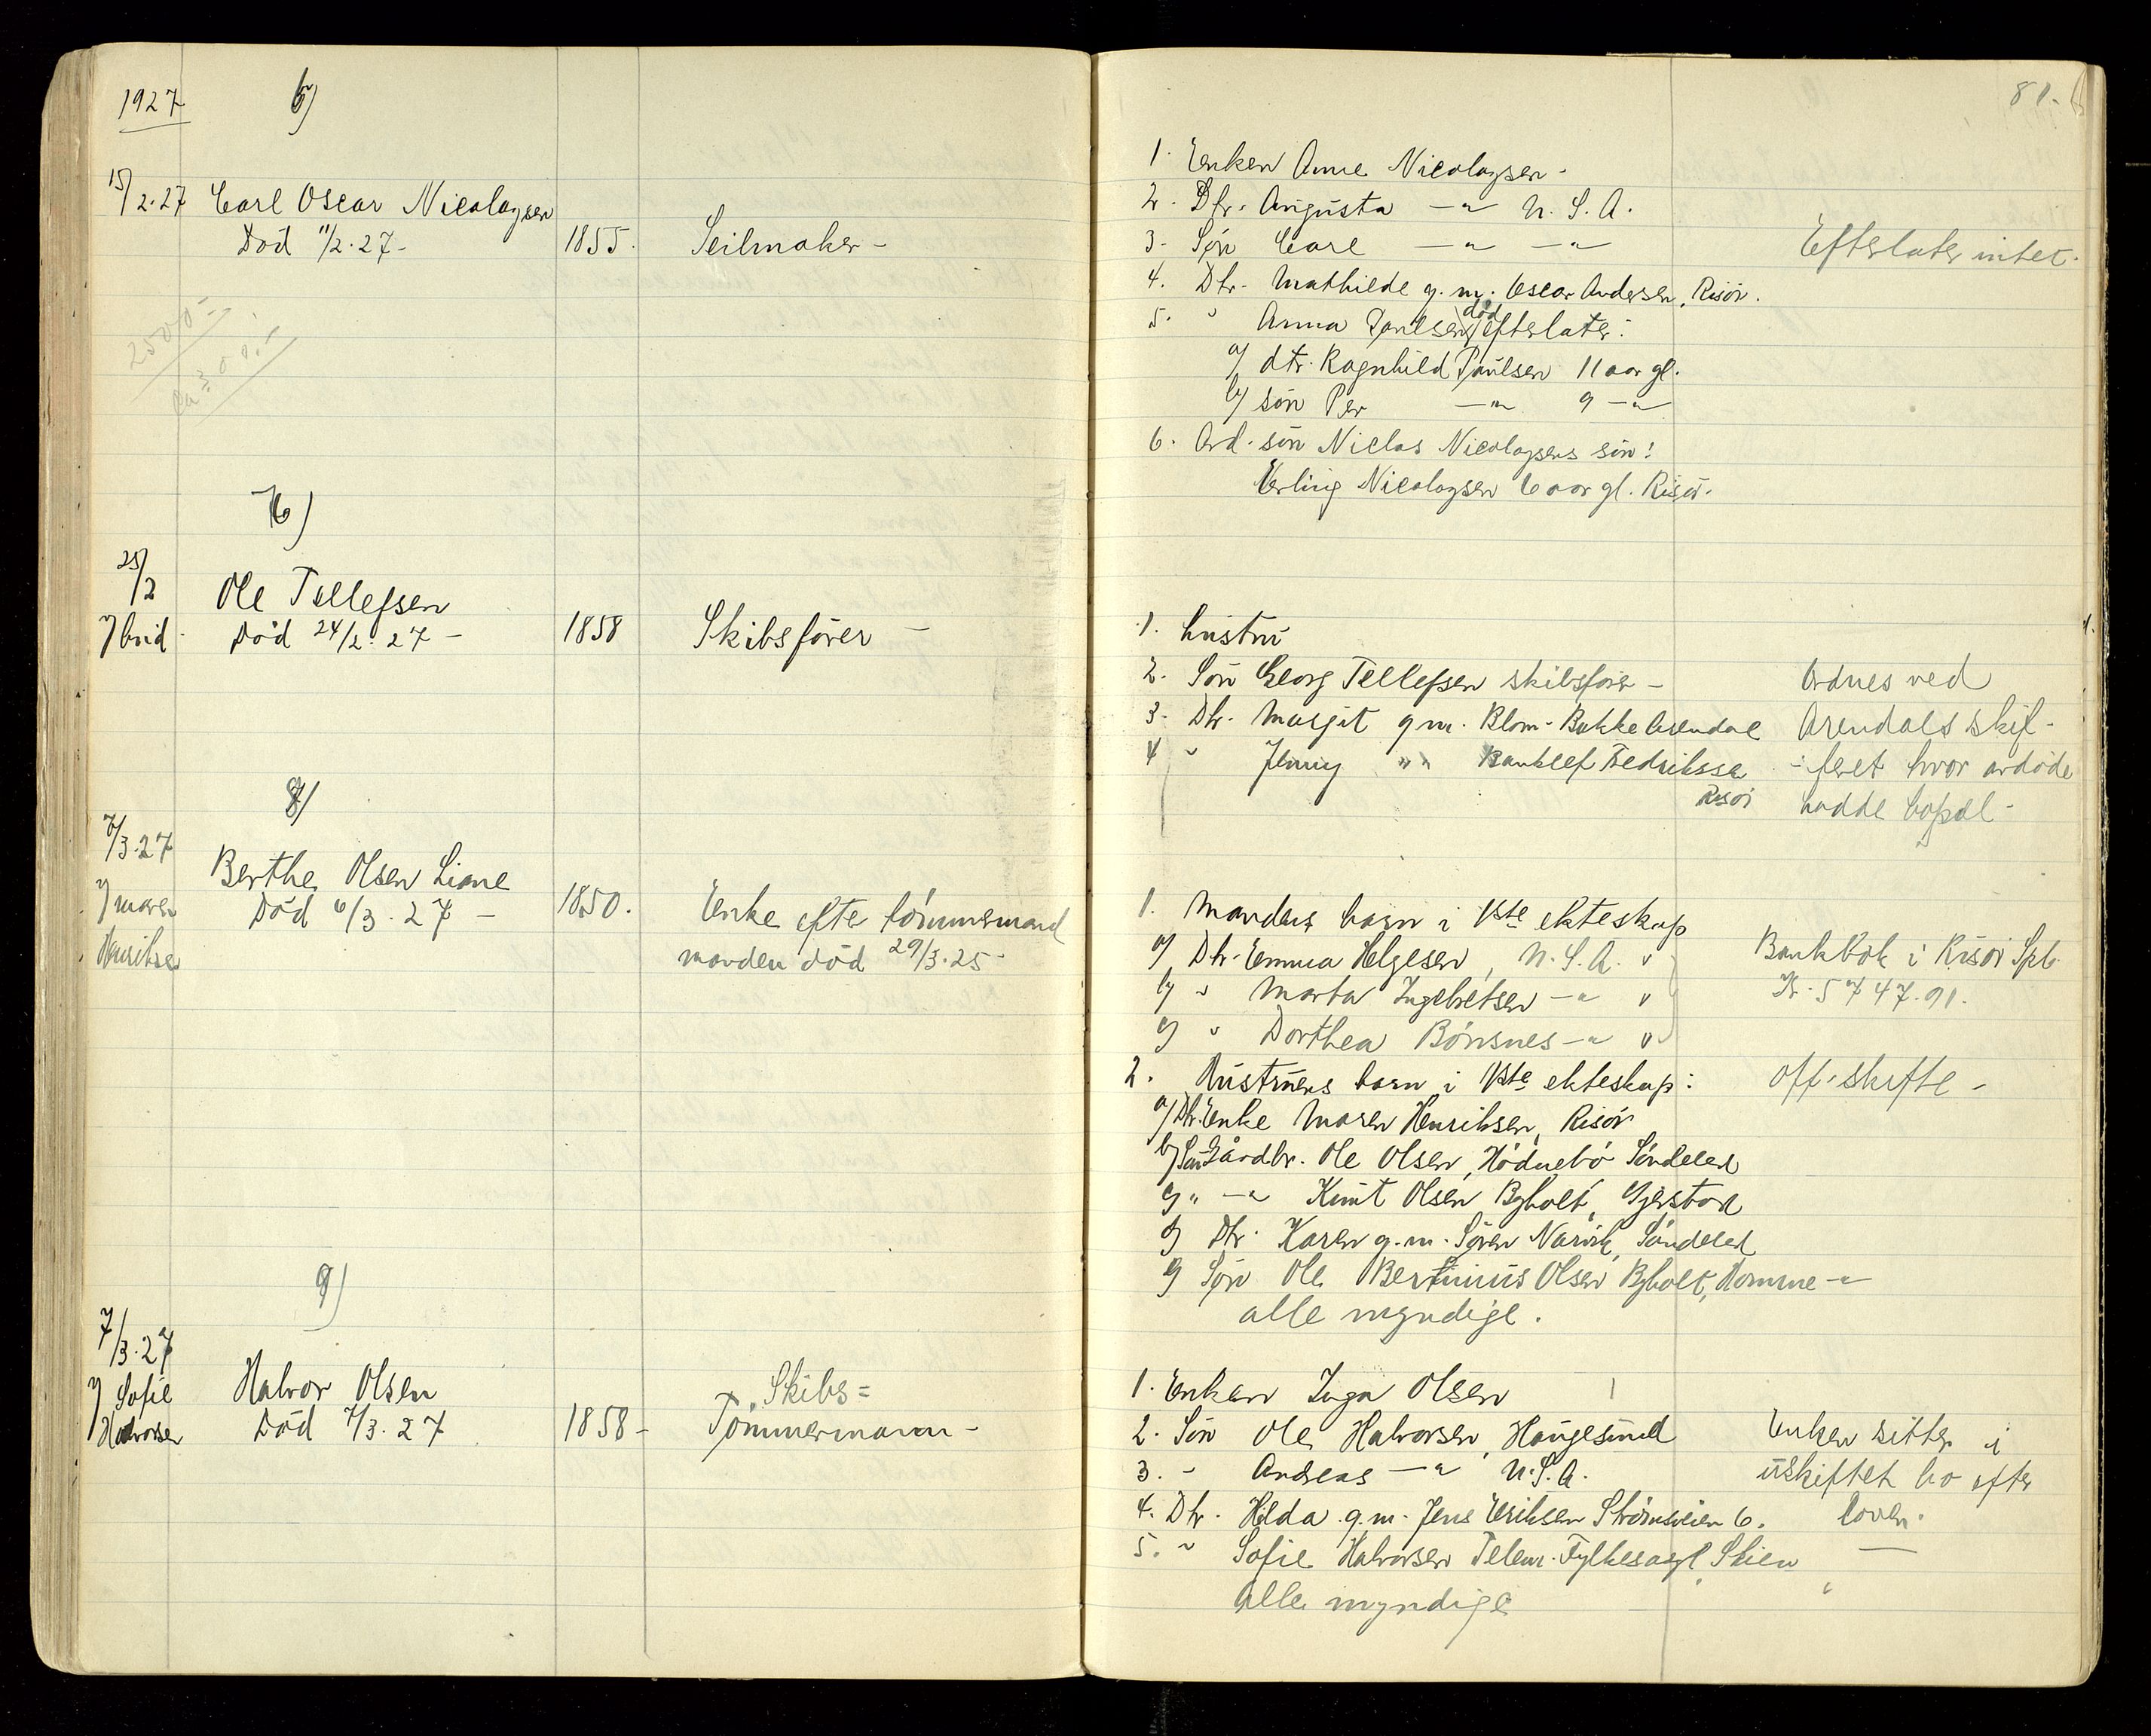 1927
6)
15/2.27 Carl Oscar Nicolaysen
Död 11/2.27-
1855.
Seilmaker -
2500.-
7)
25/2
Ole Tellefsen
v/ bud.
Död 24/2.27 -
1858
Skibsförer -
8)
7/3.27
Berthe Olsen Liane
v/ Maren
Henriksen
Död 6/3.27 -
1850.
Enke efter tömmermand
manden död 29/3.25
9)
7/3.27
v/ Sofie
Halvorsen
Halvor Olsen
Död 7/3.27
1858-
Skibs=
Tömmermann -
81.
1. Enken Anne Nicolaysen -
2. Dtr. Augusta -"- U.S.A.
3. Søn Carl -"- -"-
Efterlater intet.
4. Dtr. Mathilde g.m. Oscar Andersen, Risör.
5. " Anna Paulsen, död efterlater:
a/ dtr. Ragnhild Paulsen 11 aar gl.
b/ sön Per -"- 9 -"-
6. Avd. sön Niclas Nicolaysens sön:
Erling Nicolaysen 6 aar gl. Risör.
1. hustru
2. Sön Georg Tellefsen skibsförer -
3. Dtr. Margit g.m. Blom-Bakke Arendal
4 " Jenny " " Banklef Fredriksen
Risör
Ordnes ved
Arendals skif-
-feret hvor avdöde
hadde bopæl -
1. Mandens barn i 1ste ekteskap
a/ Dtr. Emma Helgesen, U.S.A. v
b/ " Marta Ingebretsen -"- v
c/ " Dorthea Bönsnes -"- v
Bankbok i Risör Spb.
Kr. 5747.91.
2. Hustruens barn i 1ste ekteskap:
off. skifte -
a/ Dtr. Enke Maren Henriksen, Risör
b/ Sön Gårdbr. Ole Olsen, Hödnebö Söndeled
c/ " -"- Knut Olsen Byholt, Gjerstad
d/ Dtr. Karen g.m. Sören Narvik, Söndeled
e/ Søn Ole Bertinius Olsen Byholt, Homme -"-
alle myndige.
1. Enken Inga Olsen
2. Sön Ole Halvorsen, Haugesund
3. - Andreas -"- U.S.A.
4. Dtr. Hilda g.m. Jens Eriksen Strömsveien 6.
5. " Sofie Halvorsen Telem. Fylkesavgl. Skien
Alle myndige
Enken sitter i
uskiftet bo efter
loven.